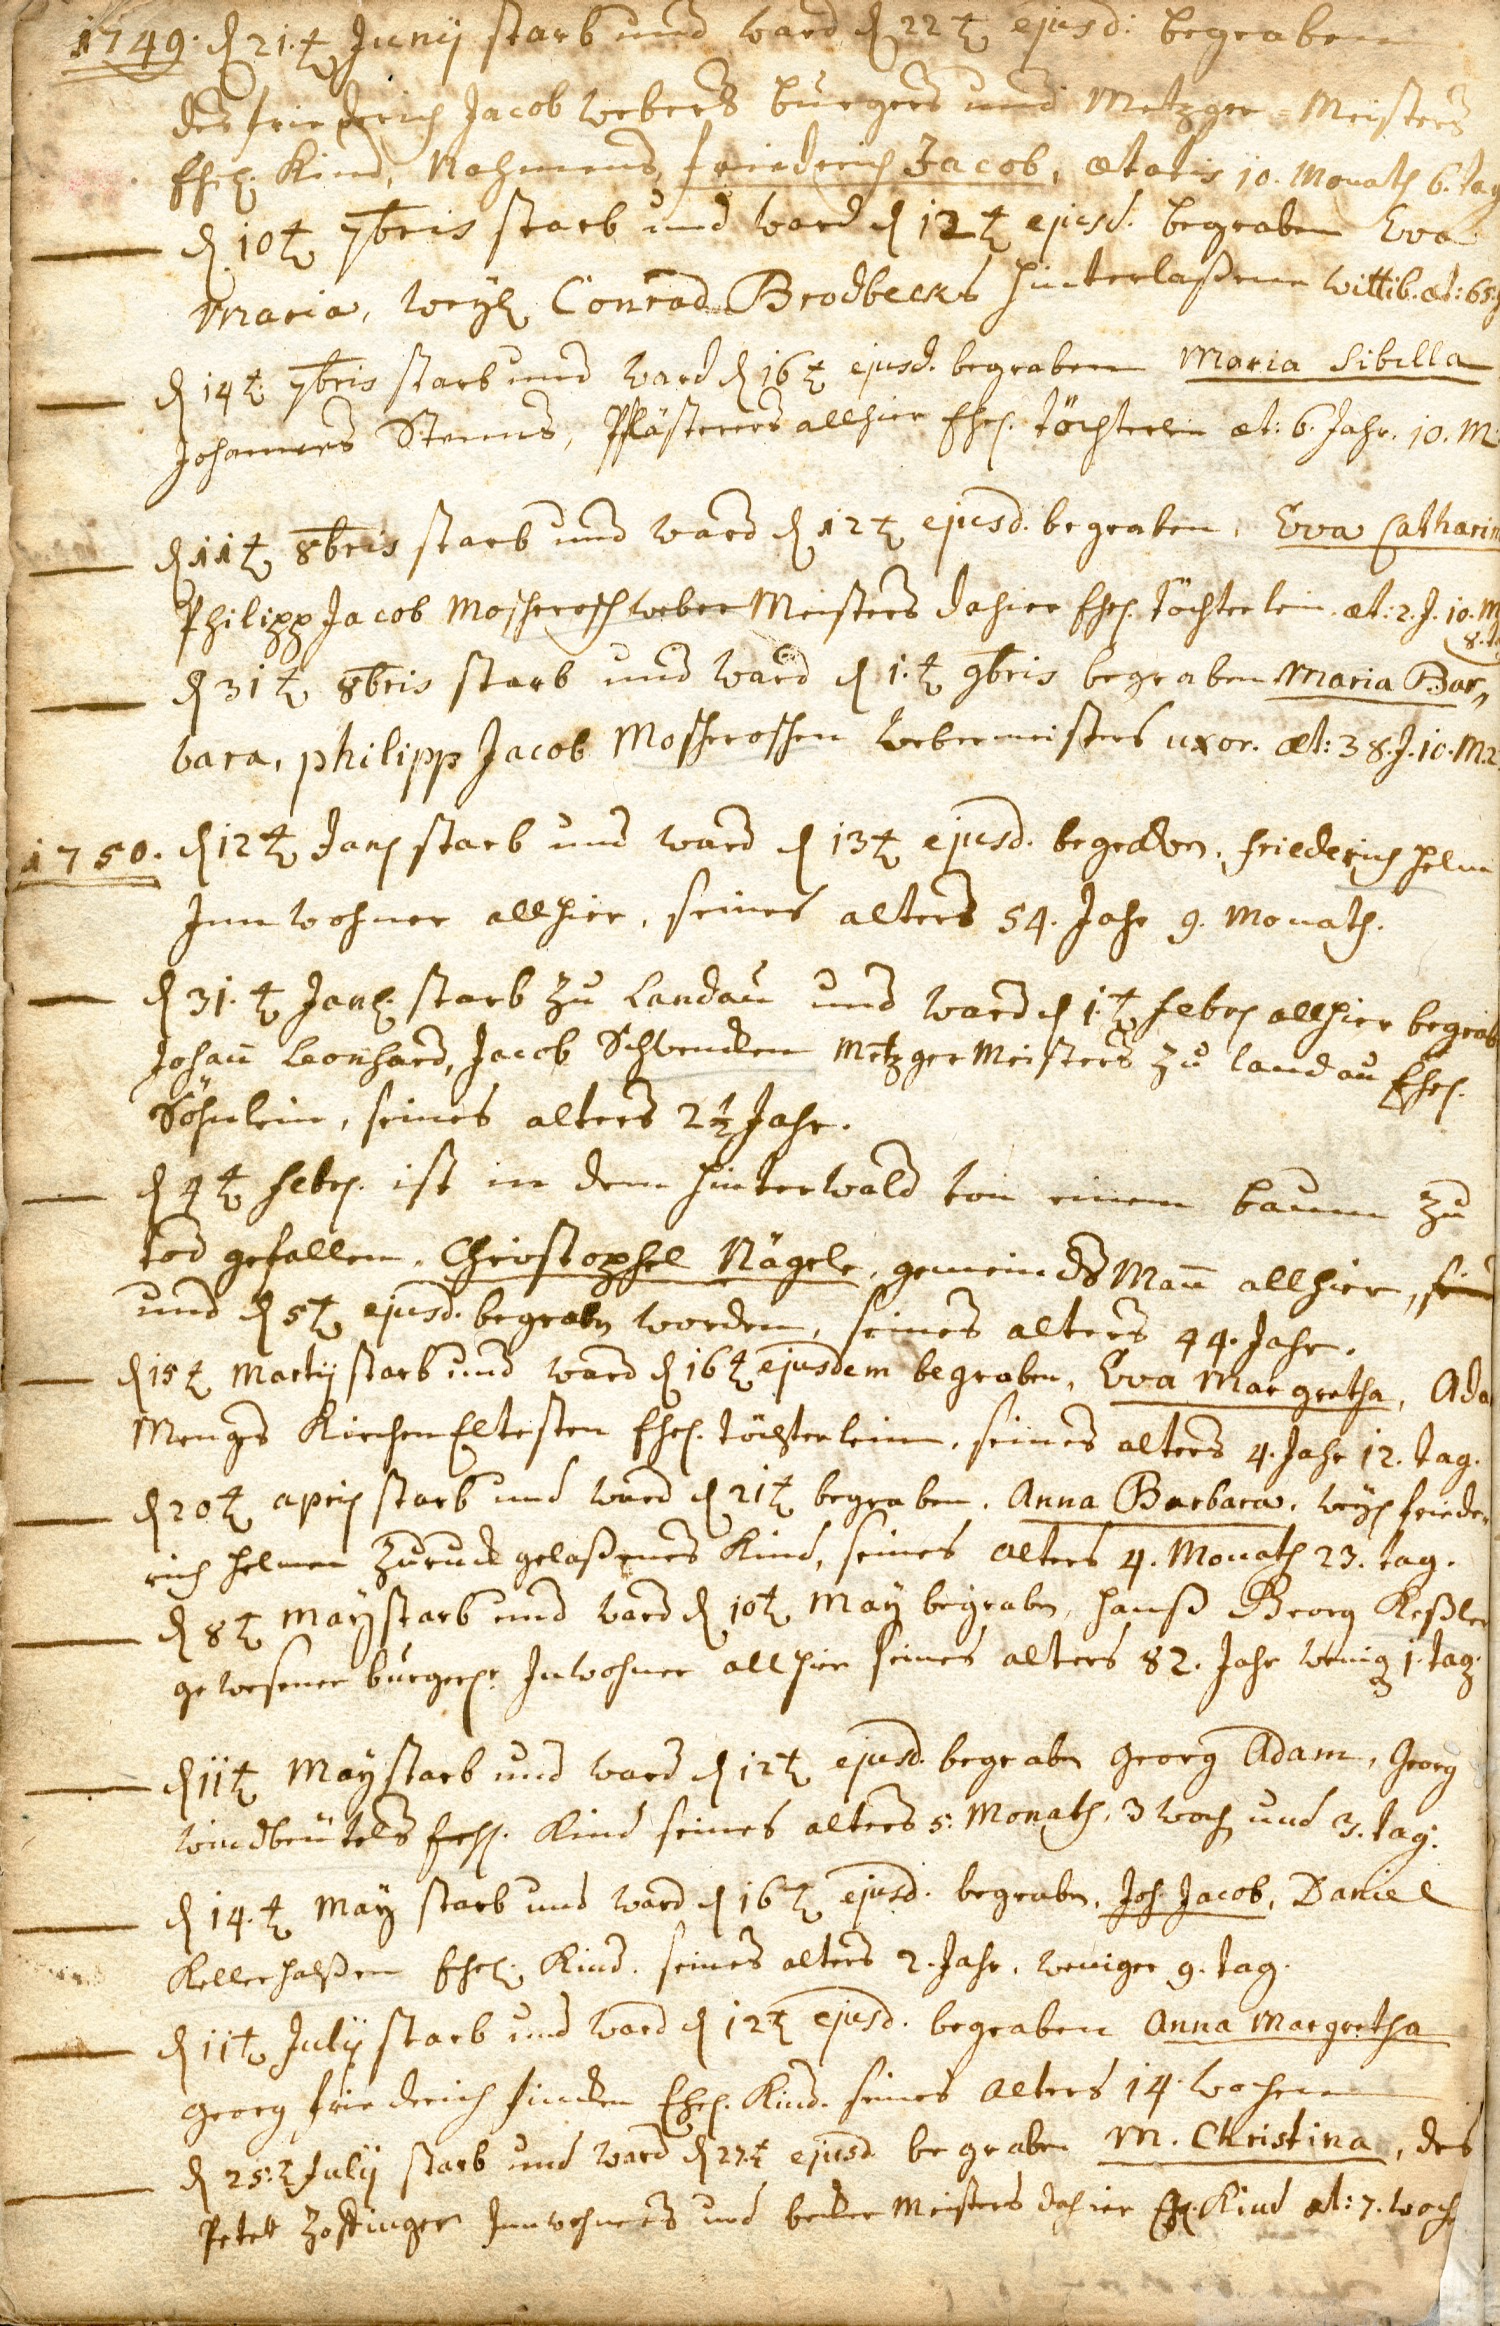 1749. d 21.t Junij starb und ward d 22t ejusd: begraben
des friederich Jacob webers burgers und Metzger-Meisters
Ehel. Kind, Nahmens friederich Jacob, ætatis 10. Monath 6. tag
d 10t 7bris starb und ward d 12t ejusd. begraben Eva
Maria, weyl. Conrad Brodbecks hinterlaßene wittib. æt: 65.
d 14t 7bris starb und ward d 16t ejusd. begraben Maria Sibilla
Johannes Stemms, Pflästerers allhier Ehel. töchterlein æt: 6. Jahr. 10. M.
d 11t 8bris starb und ward d 12t ejusd. begraben, Eva Catharin
Philipp Jacob Moscherosch weber Meisters dahier Ehel. töchterlein. æt: 2. J. 10. M
8. t
d 31t 8bris starb und ward d 1.t 9bris begraben Maria Bar„
bara, philipp Jacob Moscheroschen webermeisters uxor. æt: 38. J. 10. M. 2
1750. d 12t Jan starb und ward d 13t ejusd. begraben, friederich helm
Innwohner allhier, seines alters 54. Jahr 9. Monath.
d 31.t Jan. starb zu Landau und ward d 1.t febr allhier begrab
Johann Leonhard, Jacob Schwencken Metzger Meisters zu Landau Ehel.
Söhnlein, seines alters 2 1/2 Jahr.
d 4t febr. ist in dem hinterwald von einem baum zu
tod gefallen, Christophel Nägele, gemeinds Mann allhier,
und d 5t ejusd. begraben worden, seines alters 44. Jahr.
d 15t Martij starb und ward d 16t ejusdem begraben, Eva Margretha, Ada
Mengs KirchenEltesten Ehel. töchterlein, seines alters 4. Jahr 12. tag.
d 20t april starb und ward d 21t begraben, Anna Barbara, weyl friede
rich helmen zuruck gelaßenes Kind, seines alters 4. Monath 23. tag.
d 8t May starb und ward d 10t May begraben, hanß Georg Keßler
gewesener burgerl. Inwohner allhier seines alters 82. Jahr wenig 1. tag.
d 11t May starb und ward d 12t ejusd. begraben Georg Adam, Georg
windbeutels Ehel. Kind seines alters 5. Monath, 3 woch und 3. tag.
d 14.t May starb und ward d 16t ejusd. begraben, Joh. Jacob, Daniel
Kellerhalßen Ehel. Kind. seines alters 2. Jahr, weniger 9. tag.
d 11t Julij starb und ward d 12t ejusd. begraben Anna Margretha
Georg friederich fincken Ehel. Kind. seines alters 14. wochen
d 25.t Julij starb und ward d 27.t ejusd begraben M. Christina, des
Peter Zoffinger Innwohners und becker Meisters dahier Ehl. Kind æt: 7. woch